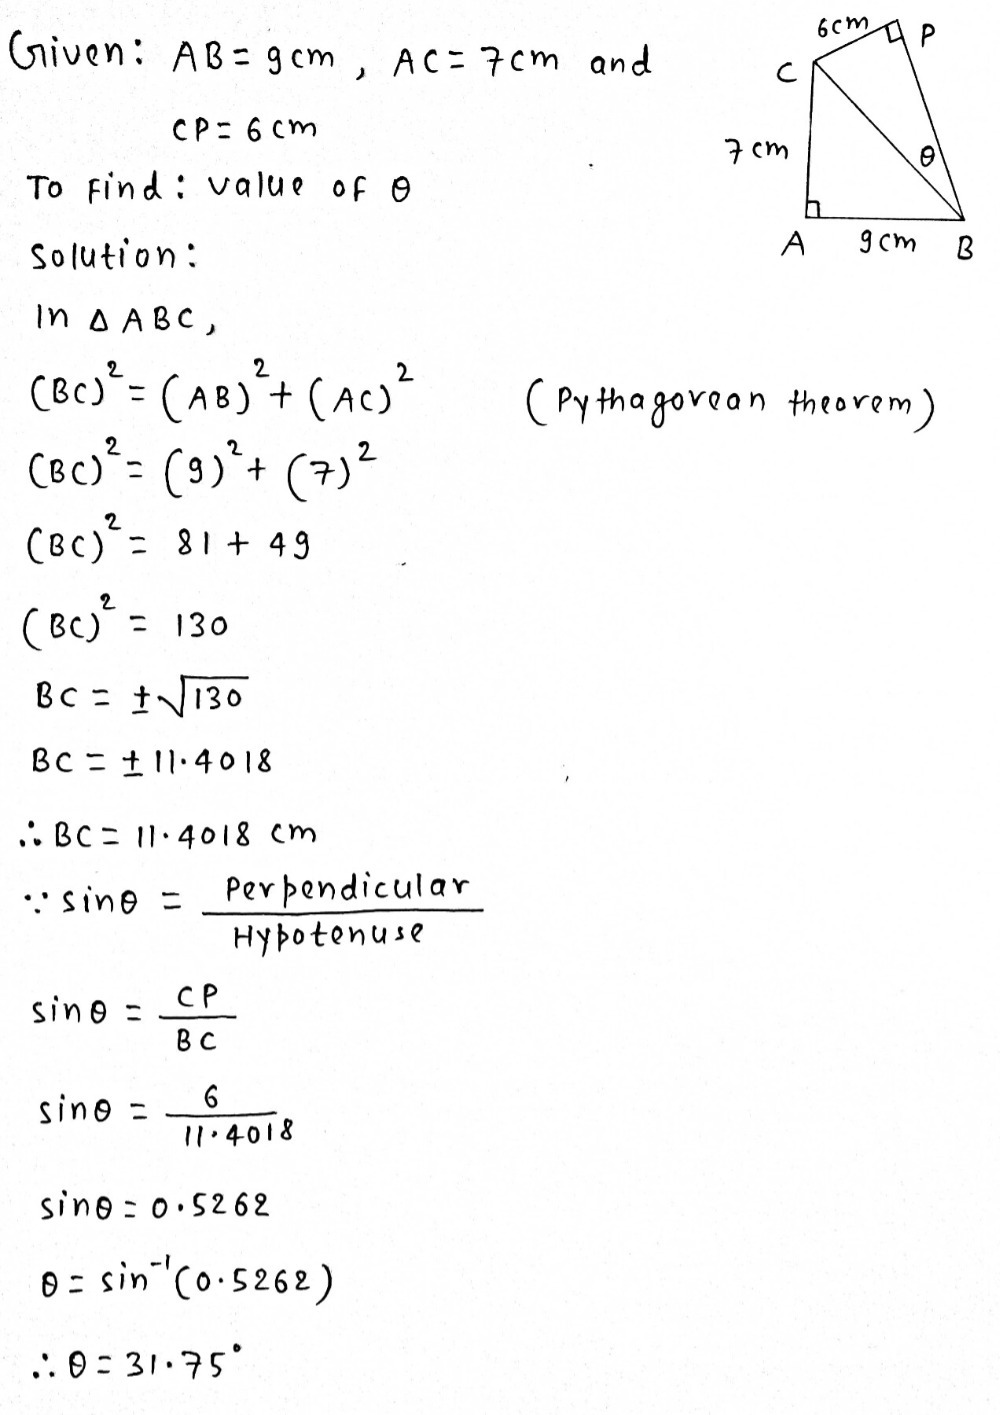 Given: AB = 9cm, AC = 7cm and
CP = 6cm
To Find: value of θ
Solution:
In Δ ABC,
(BC)² = (AB)² + (AC)² (Pythagorean theorem)
(BC)² = (9)² + (7)²
(BC)² = 81 + 49
(BC)² = 130
BC = ±√130
BC = ± 11.4018
∴ BC = 11.4018 cm
∵ sinθ = Perpendicular / Hypotenuse
sinθ = CP / BC
sinθ = 6 / 11.4018
sinθ = 0.5262
θ = sin⁻¹(0.5262)
∴ θ = 31.75°
6cm
P
C
7cm
θ
A
9cm
B